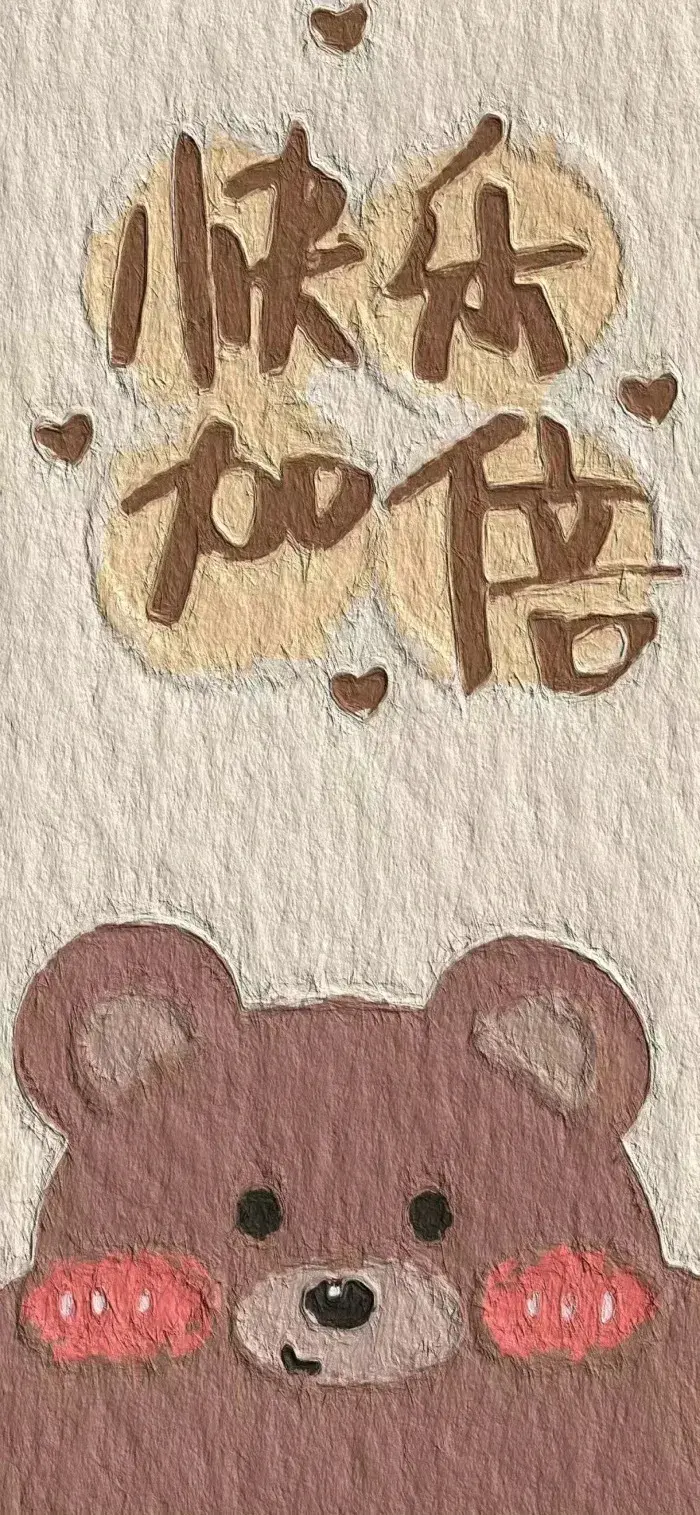 快乐
加倍